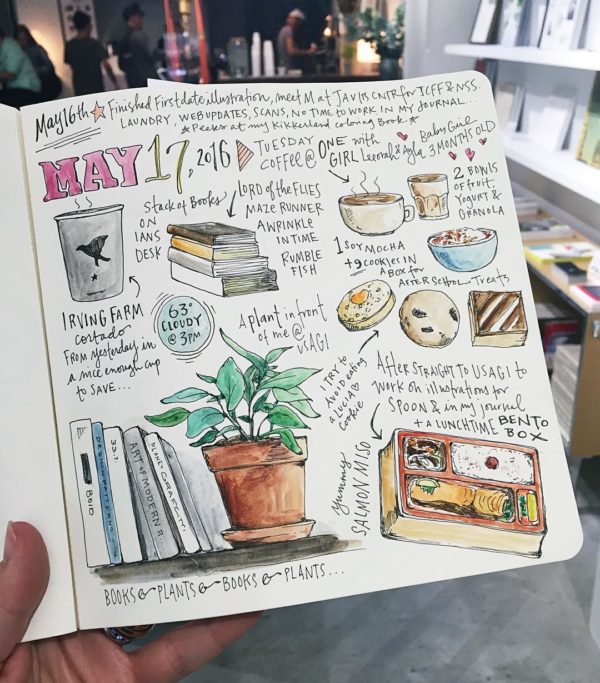 May 16th ★ Finished First date, illustration, meet M at JAVITS CNTR for ICFF & NSS.
LAUNDRY, WEB UPDATES, SCANS, NO TIME TO WORK IN MY JOURNAL...
★ Peeks at my Kikkerland coloring Book ★
MAY 17, 2016
TUESDAY
coffee @ ONE with
GIRL Leeorah & Ayla
Baby Girl
3 MONTHS OLD
Stack of Books
ON
IANS
DESK
LORD of the FLIES
MAZE RUNNER
A WRINKLE
IN TIME
RUMBLE
FISH
2 BOWLS
of fruit,
YOGURT &
GRANOLA
1 SOY MOCHA
+ 9 COOKIES IN
A BOX for
AFTER SCHOOL Treats
IRVING FARM
cortado
FROM yesterday in
a nice enough cup
to SAVE...
63°
CLOUDY
@ 3PM
A plant in front
of me @
USAGI
I TRY to
AVOID eating
a LUCIA
Cookie
After STRAIGHT TO USAGI to
WORK on illustrations for
SPOON & in my journal
+ A LUNCHTIME BENTO
BOX
Yummy
SALMON MISO
BOID
33.1
ART OF MODERN R...
BOOKS & PLANTS & BOOKS & PLANTS...